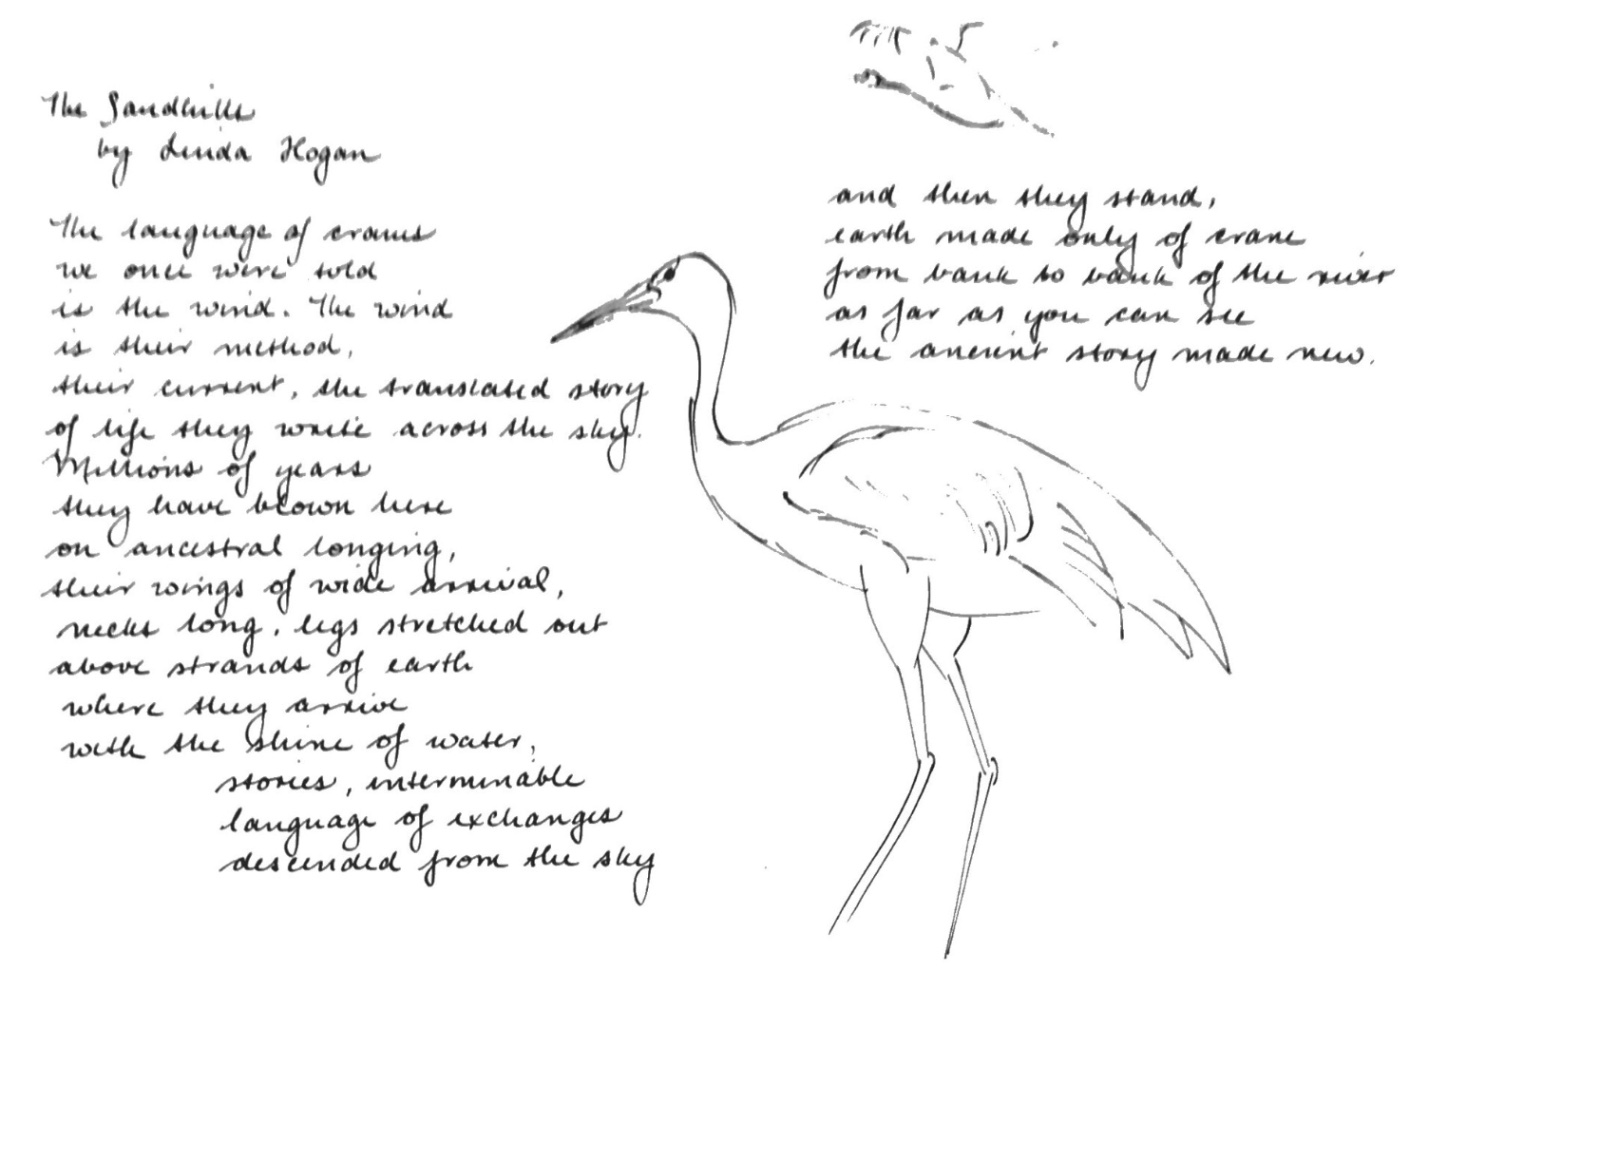 The Sandhills
by Linda Hogan
The language of cranes
we once were told
is the wind. The wind
is their method,
their current, the translated story
of life they write across the sky.
Millions of years
they have blown here
on ancestral longing,
their wings of wide arrival,
necks long, legs stretched out
above strands of earth
where they arrive
with the shine of water,
stories, interminable
language of exchanges
descended from the sky
and then they stand,
earth made only of crane
from bank to bank of the river
as far as you can see
the ancient story made new.